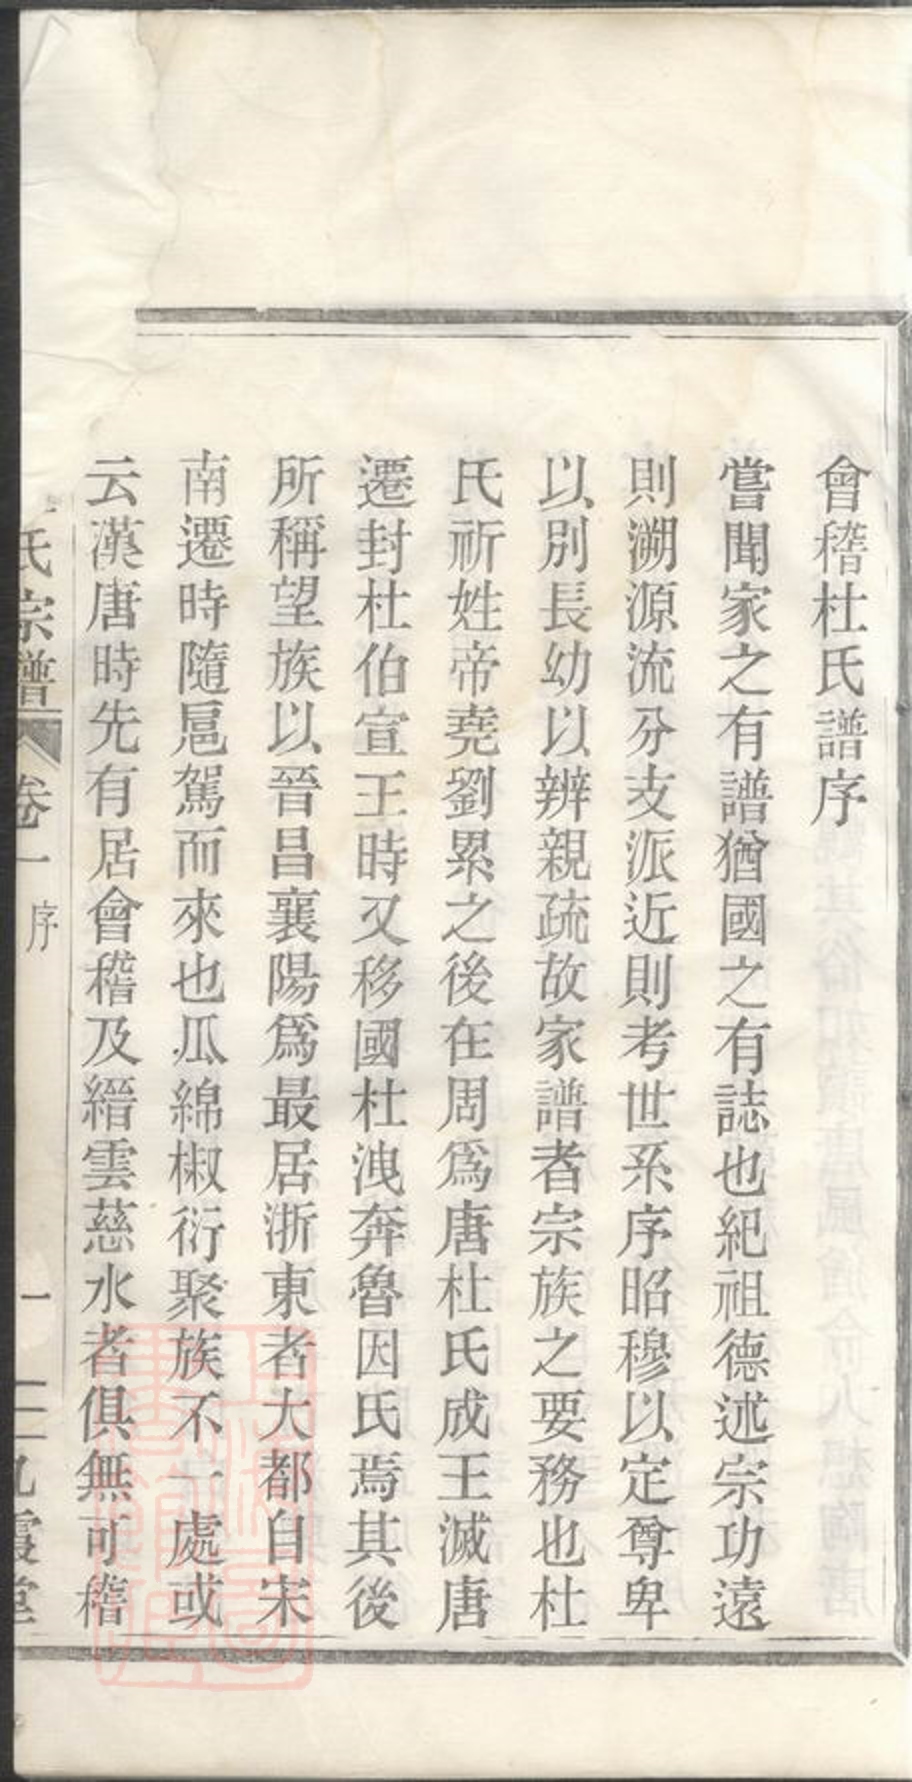 會稽杜氏譜序
嘗聞家之有譜猶國之有誌也紀祖德述宗功遠
則溯源流分支派近則考世系序昭穆以定尊卑
以別長幼以辨親疏故家譜者宗族之要務也杜
氏祈姓帝堯劉累之後在周爲唐杜氏成王滅唐
遷封杜伯宣王時又移國杜洩奔魯因氏焉其後
所稱望族以晉昌襄陽爲最居浙東者大都自宋
南遷時隨扈駕而來也瓜綿椒衍聚族不一處或
云漢唐時先有居會稽及縉雲慈水者俱無可稽
氏宗譜 卷一 序 一 九霞堂